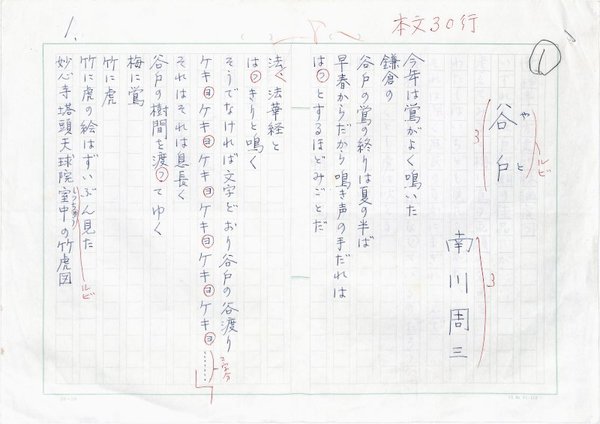 1.
本文30行
①
谷戸
やと
ルビ
3
南川周三
3
今年は鶯がよく鳴いた
鎌倉の
谷戸の鶯の終りは夏の半ば
早春からだから鳴き声の手だれは
はっとするほどみごとだ
法、法華経と
はっきりと鳴く
そうでなければ文字どおり谷戸の谷渡り
ケキョケキョケキョケキョケキョケキョ……
それはそれは息長く
谷戸の樹間を渡ってゆく
梅に鶯
竹に虎
竹に虎の絵はずいぶん見た
妙心寺塔頭天球院室中の竹虎図
しっちゅう
ルビ